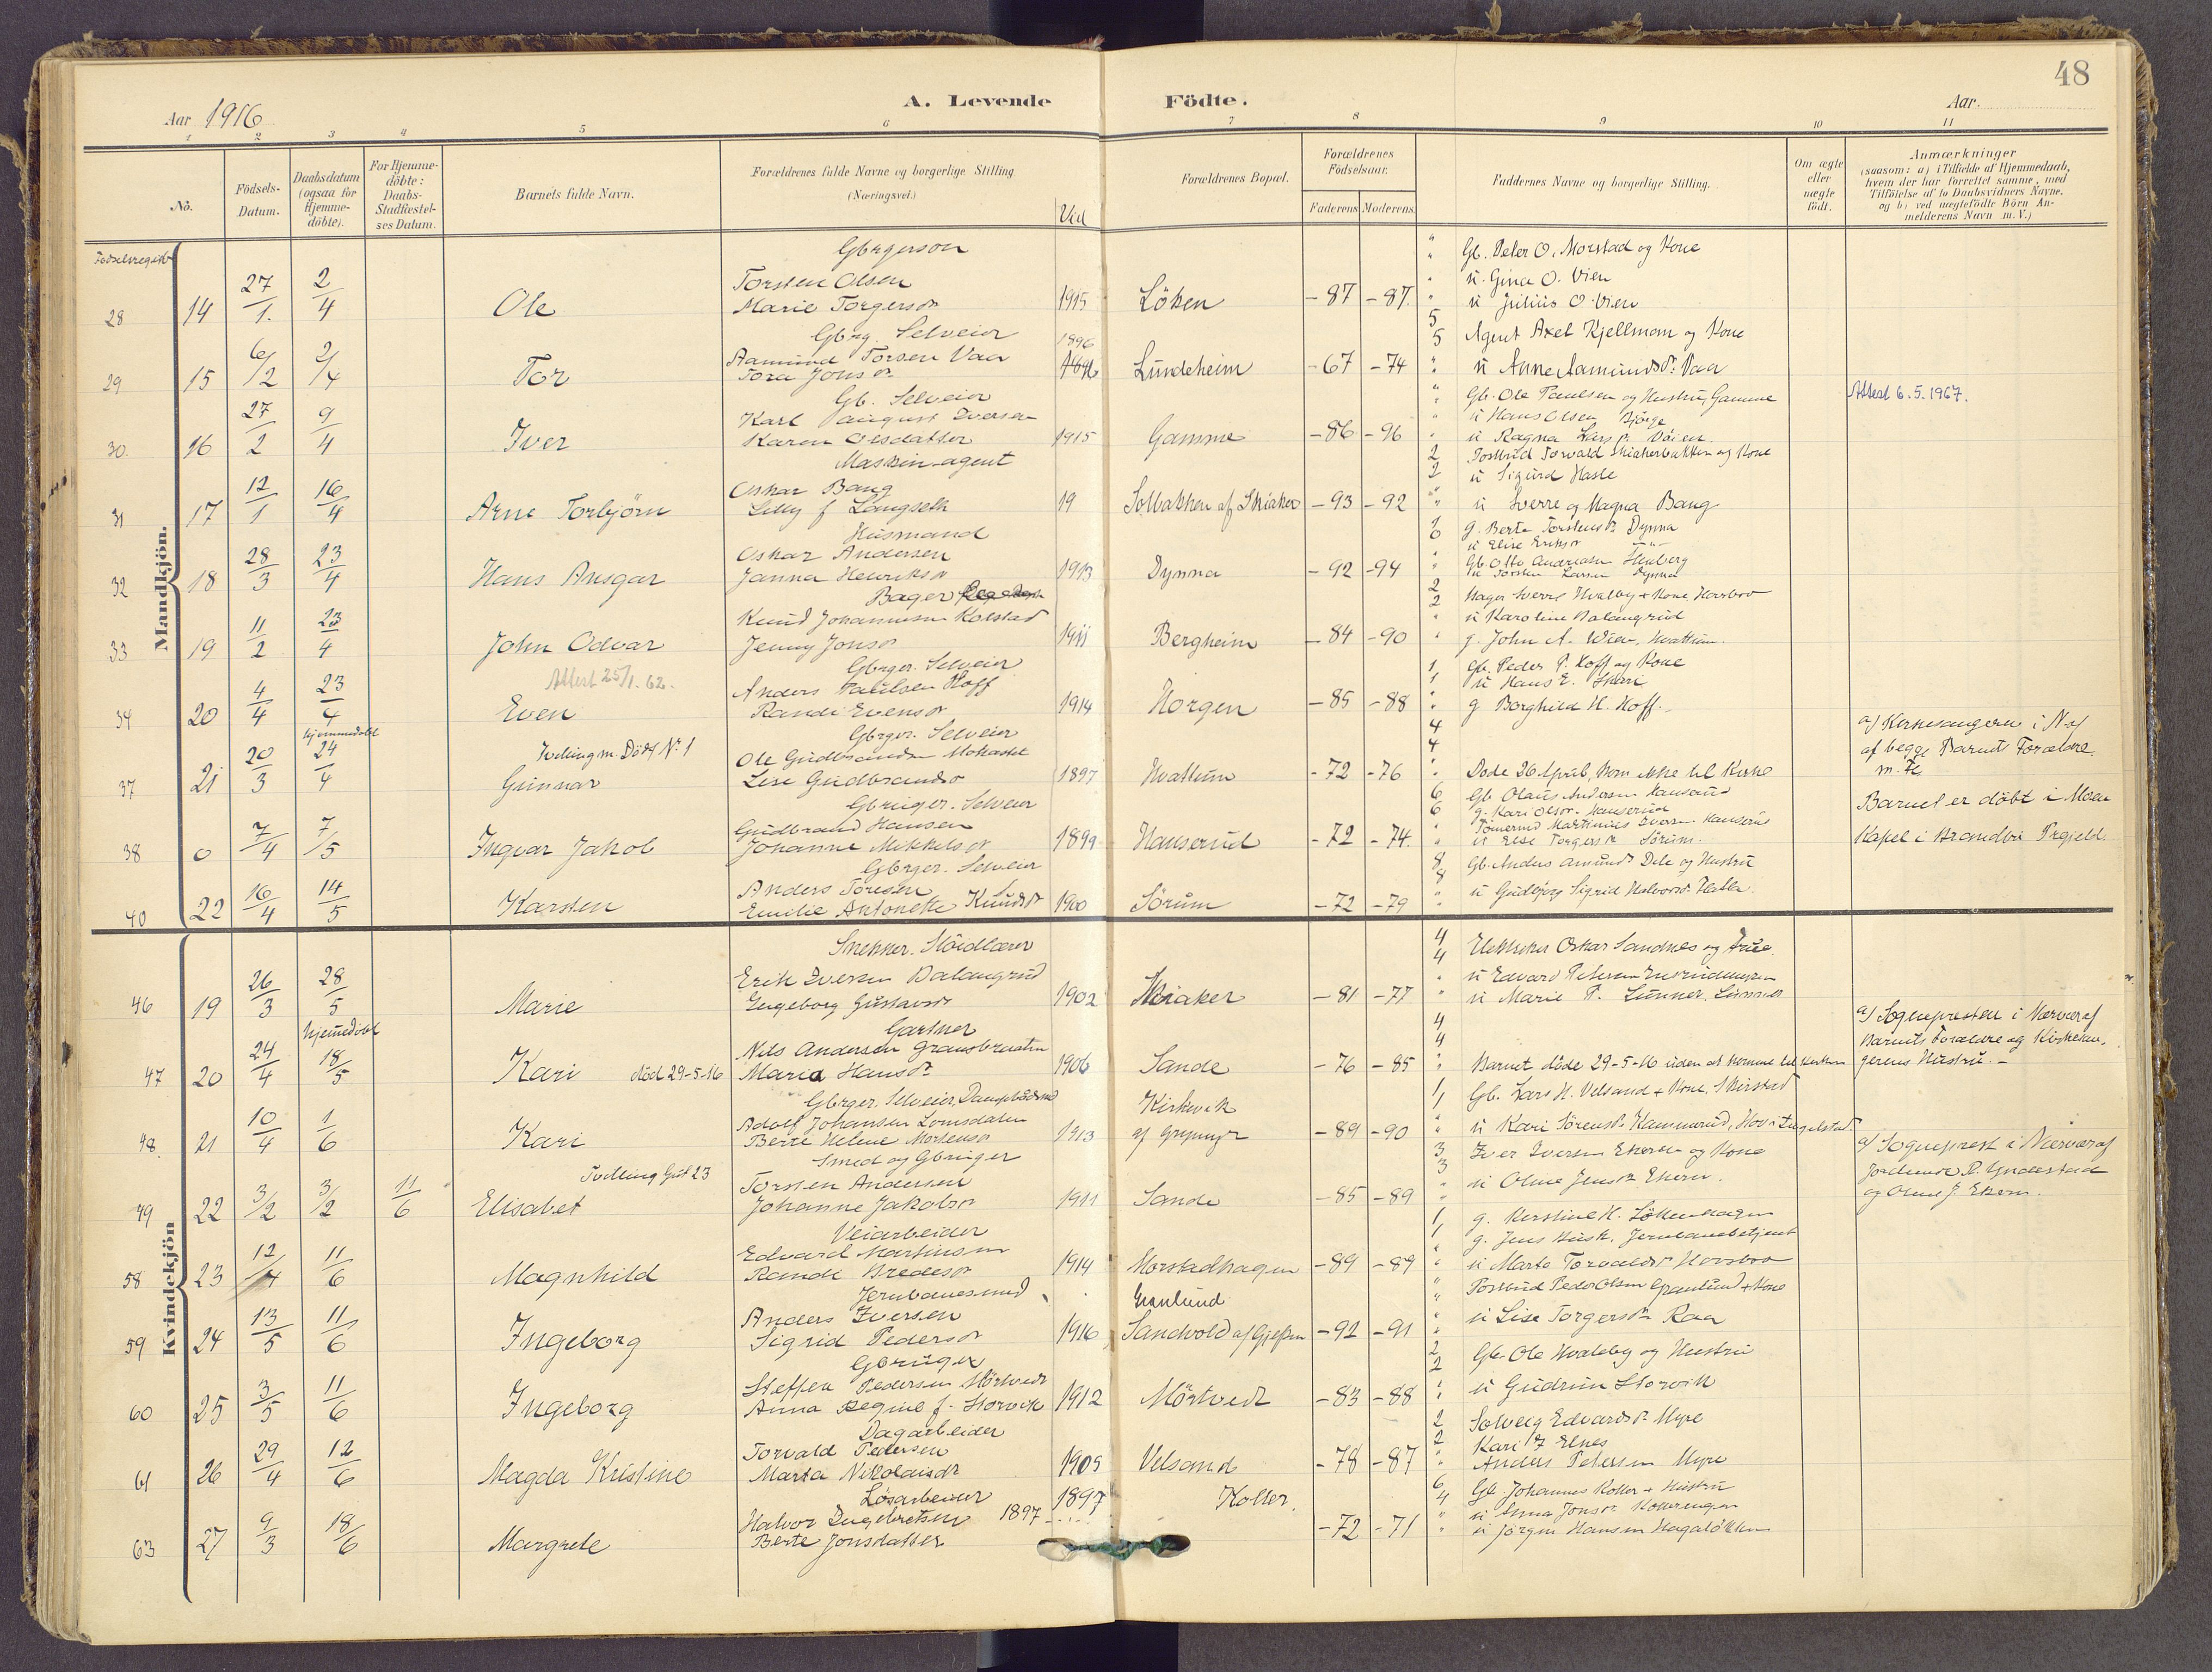 48
Aar 1916
A. Levende Födte.
Aar.
1 2 3 4 5 6 7 8 9 10 11
No.
Födsels-Datum.
Daabsdatum (ogsaa for Hjemme-döbte).
For Hjemme-döbte: Daabs-Stadfæstel-ses Datum.
Barnets fulde Navn.
Forældrenes fulde Navne og borgerlige Stilling
(Næringsvei.)
Viet
Forældrenes Bopæl.
Forældrenes Födselsaar.
Faderens Moderens
Faddernes Navne og borgerlige Stilling.
Om ægte eller uægte födt.
Anmærkninger
(saasom: a) i Tilfælde af Hjemmedaab,
hvem der har forrettet samme, med
Tilföielse af to Daabsvidners Navne.
og b) ved uægtefödte Börn An-
melderens Navn m.V.)
Mandkjön.
Gbrgerson
Gb. Peter O. Morstad og Kone
Torsten Olsen
u Gina O. Vien
28 14 27/1. 2/4 Ole Marie Torgersdr 1915 Löken -87 -87.
u Julius O. Vien
Gbrg. Selveier
Agent Axel Kjellmann og Kone
Aamund Torsen Vaa 1896
29 15 6/2 2/4 Tor Tora Jonsdr Lundeheim -67 -74
u Anne Aamundsdr. Vaa
Gb. Selveier
Gb. Ole Paulsen og Hustru, Gamme
Attest 6.5.1967.
Karl August Iversen
u Hans Olsen Bjørge
30. 16 27/2 9/4 Iver Karen Olsdatter 1915 Gamme -86 -96
u Ragna Larsdr.
Maskin-agent
u Sigurd Hasle
Oskar Bang
31 17 12/1 16/4 Arne Torbjörn Lilly f. Langseth 19 Solbakken af Skiaker -93 -92
u Sverre og Magna Bang
Husmand
g. Berte Torstensdr Dynna
u Elise
Oskar Andersen
32 18 28/3 23/4 Hans Ansgar Janna Henriksdr 1913 Dynna -92 -94
u Torsten Larsen Dynna
Bager
Bager Sverre Hvalby + Kone
Knud Johannesen Kolstad
u Karoline
33 19 11/2 23/4 John Odvar Jenny Jonsdr 1911 Bergheim -84 -90
g. John A. Wien, Hvattum.
Attest 25/1.62.
Gbrger. Selveier
Gb. Peder P. Hoff og Kone
Anders Paulsen Hoff
u Hans E.
34 20 4/4 23/4 Even Randi Evensdr 1914 Horgen -85 -88
g Borghild H. Hoff.
Hjemmedøbt
Gbrger. Selveier
Tvilling m. Dødf Nr. 1
a/ Kirkesangeren i N af
af begge Barnets Forældre
Ole Gudbrandsen
37 21 20/3 24/4 Gunnar Lise Gudbrandsdr 1897 Hvattum -72 -76
Døde 26 April, kom ikke til Kirke
Gbruger. Selveier
Gb Olaus Andersen Hanserud
g. Kari Olsdr. Hanserud
Barnet er döbt i Moen
Gudbrand Hansen
Martinius Iversen Hanserud
38 0 7/4 7/5 Ingvar Jakob Johanne Mikkelsdr 1899 Hanserud -72 -74.
u Else Torgersdr Sörum.
Kapel i Brandbu Prgjeld.
Gbrger. Selveier
Gb. Anders Amunds. Dele og Hustru
Anders Toresen
40 22 16/4 14/5 Karsten Emilie Antonette Knudsdr 1900 Sörum -72 -79
u Gudbjørg Sigrid Halvorsdr.
Kvindekjön
Snekker. Slöidlærer
Oskar Sandnes og Frue.
Erik Iversen Dalangrud
u Edvard Petersen
46 19 26/3 28/5 Marie Engeborg Gustavsdr 1902 Skiaker -81 -77
u Marie P. Lunner, Lunner
Hjemmedøbt
Gartner
a/ Sognepresten i Nærvær af
Barnets Forældre og Kirkesan-
gerens Hustru.-
Nils Andersen
47 20 24/4 18/5 Kari død 29-5-16 Maria Hansdr. 1906 Sande -76 -85
Barnet døde 29-5-16 uden at komme til Kirken
Gbrger. Selveier,
Kirkevik
Gb. Lars H. Velsand + Kone,
Adolf Johansen Lomsdalen
48. 21 10/4 1/6 Kari Berte Helene Mortensdr 1913 -89 -90
u Kari Sörensdr. Hammerud, Hov i
Smed og Gbruger
Iver Iversen Ekern og Kone
a/ Sogneprest i Nærvær af
og Oline J. Ekern.
Tvilling
Torsten Andersen
49 22 3/2 3/2 11/6 Elisabet Johanne Jakobsdr 1911 Sande -85 -89
u Oline Jensdr Ekern.
Veiarbeider
g. Kerstine H. Løkenhagen
g. Jens Jernbanebetjent
Edvard Martinsen
58 23 12/4 11/6 Magnhild Randi Bredesdr 1914 Morstadhagen -89 -89
u Marta Torvaldsdr
Jernbanesmed
Granlund
Postbud Peder Olsen Granlund + Kone
Anders Iversen
59 24 13/5 11/6 Ingeborg Sigrid Pedersdr 1916 Sandvold af -92 -91
u Lise Torgersdr Raa
Gbruger
Gb. Ole Hvaleby og Hustru
Steffen Pedersen Mörtvedt
60 25 3/5 11/6 Ingeborg Anna Regine f. Storvik 1912 Mörtvedt -83 -88
u Gudrun Storvik
Dagarbeider
Solveig Edvardsdr. Myre
Torvald Pedersen
Kari J Elnes
61 26 29/4 12/6 Magda Kristine Marta Nikolaisdr 1909 Velsand -78 -87
Anders Petersen Myre
Løsarbeider 1897
Koller.
Gb. Johannes Koller + Hustru
Halvor Ingebretsen 1897
u Anna Jonsdr.
63 27 9/3 18/6 Margrete Berte Jonsdatter -72 -71
u Jörgen Hansen